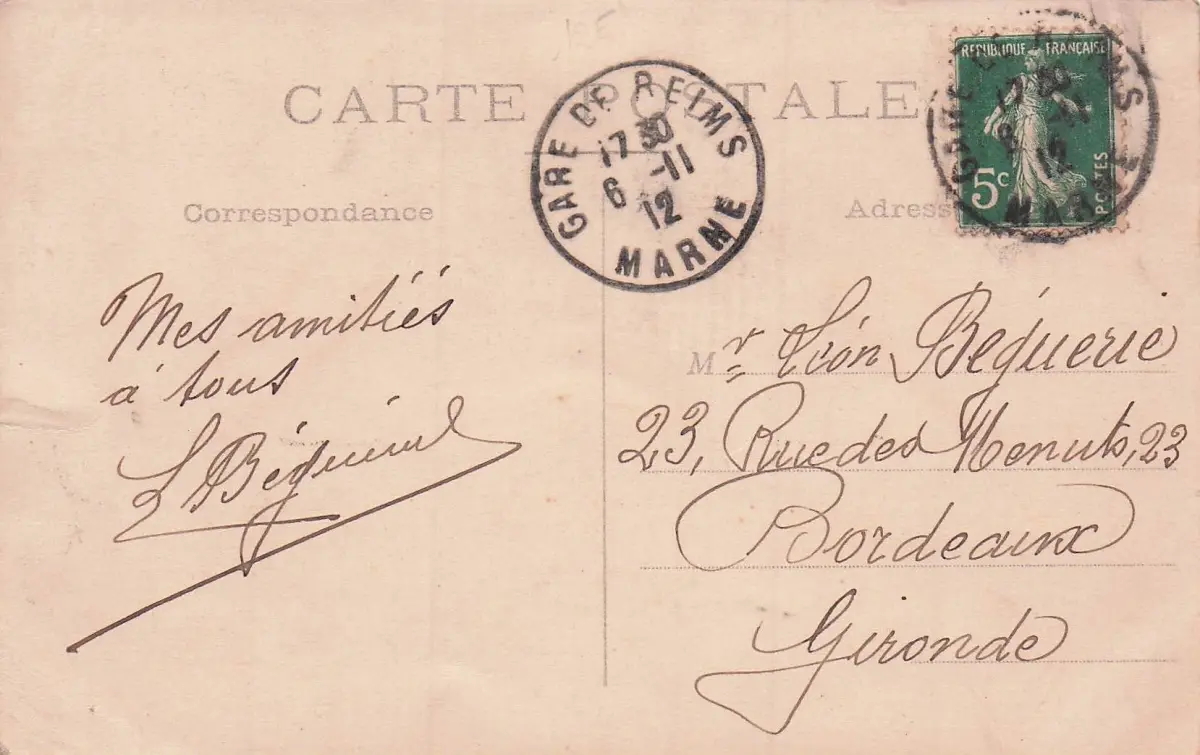 CARTE POSTALE
GARE DE REIMS
17 30
6 -11
12
MARNE
REPUBLIQUE FRANÇAISE
5c
POSTES
GARE DE REIMS
17 30
6 -11
12
MARNE
Correspondance
Adresse
Mes amitiés
à tous
L Béguerie
Mr Léon Béguerie
23, Rue des Menuts, 23
Bordeaux
Gironde